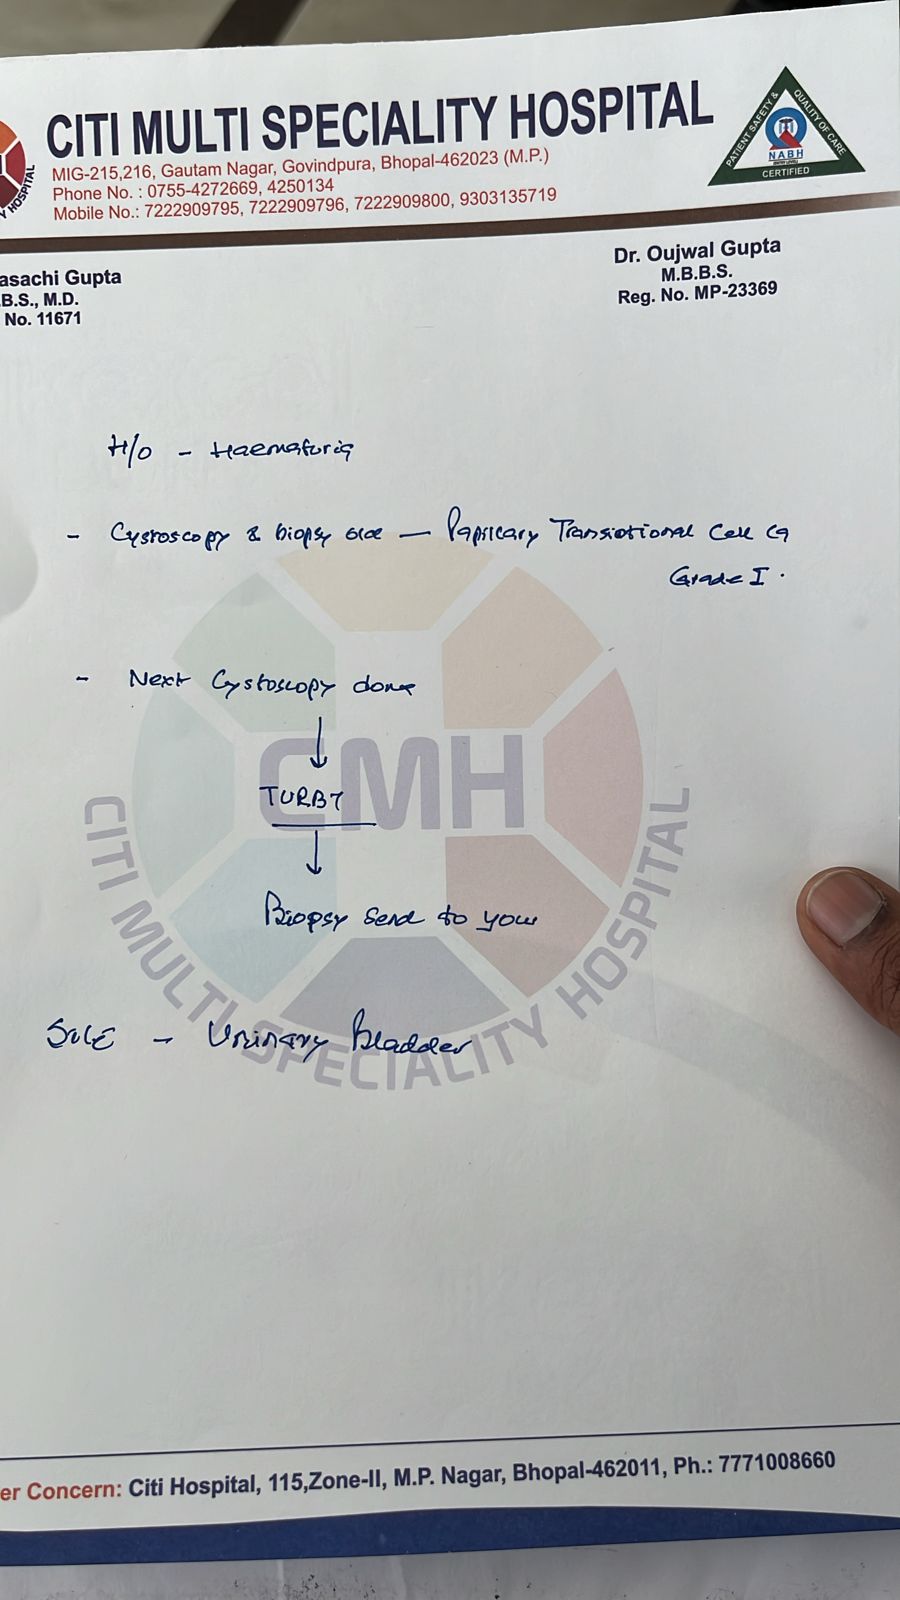 CITI MULTI SPECIALITY HOSPITAL
MIG-215,216, Gautam Nagar, Govindpura, Bhopal-462023 (M.P.)
Phone No. : 0755-4272669, 4250134
Mobile No.: 7222909795, 7222909796, 7222909800, 9303135719
PATIENT SAFETY & QUALITY OF CARE
NABH
CERTIFIED
Y HOSPITAL
asachi Gupta
.B.S., M.D.
No. 11671
Dr. Oujwal Gupta
M.B.B.S.
Reg. No. MP-23369
H/o - Haematuria
- Cystoscopy & biopsy - Papillary Transistional Cell Ca
Grade I.
- Next Cystoscopy done
↓
TURBT
↓
Biopsy Send to you
- Urinary Bladder
CMH
CITI MULTI SPECIALITY HOSPITAL
er Concern: Citi Hospital, 115,Zone-II, M.P. Nagar, Bhopal-462011, Ph.: 7771008660